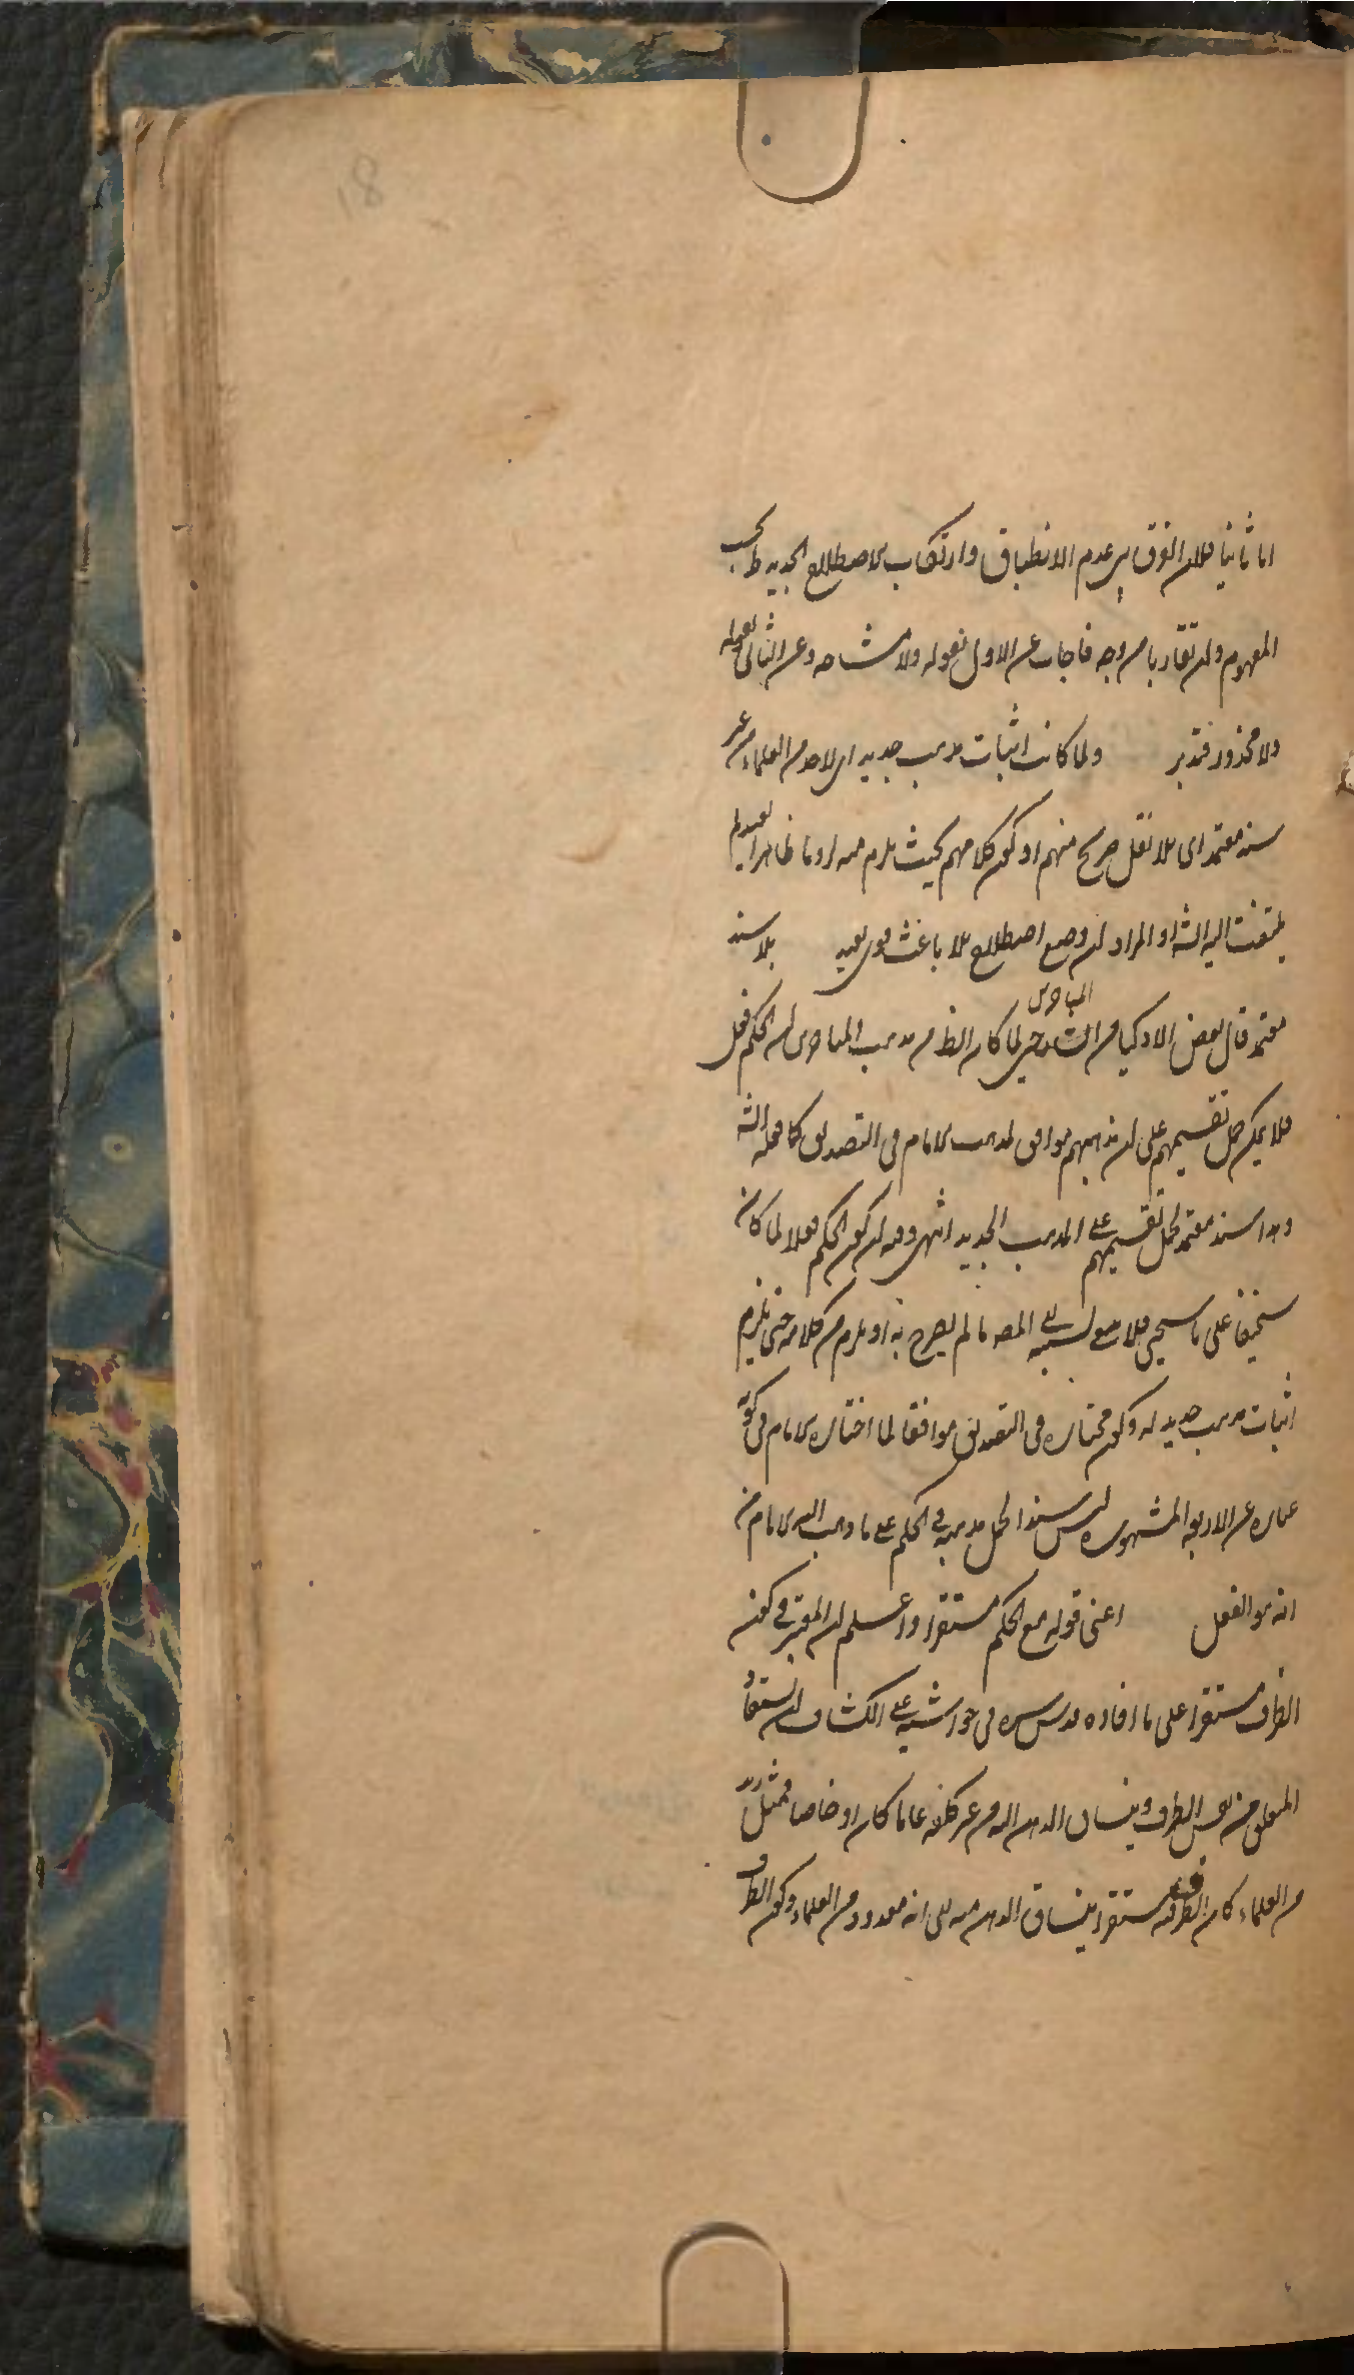 18
اما ثانيا فلان الفرق بين عدم الانطباق وارتكاب الاصطلاح الجديد ظ بحسب
المفهوم وان تقاربا من وجه فاجاب عن الاول بقوله ولا مشاحة وعن الثانى بقوله
ولا محذور فتدبر ولما كانت اثبات مذهب جديد اى لاحد من العلماء من غير
سند معتمد اى بلا نقل صريح منهم او كون كلامهم بحيث يلزم منه لزوما ظاهرا بعيدا لم
يلتفت اليه الش او المراد ان وضع اصطلاح بلا باعث قوى بعيد بلا سند
معتمد قال بعض الاذكياء من الشارحين لما كان الظ من مذهب المتاخرين ان الحكم فعل
فلا يمكن حمل تقسيمهم على ان مذهبهم موافق لمذهب الامام فى التصديق كما فعله الش
وهذا سند معتمد لحمل تقسيمهم على المذهب الجديد انتهى وفيه ان كون الحكم فعلا لما كان
سخيفا على ما سيجئ فلا نسبه الى المص ما لم يصرح به او يلزم من كلامه حتى يلزم
اثبات مذهب جديد له وكون مختاره فى التصديق موافقا لما اختاره الامام فى كونه
عبارة عن الاربعة المشهورة ليس سندا لحمل مذهبه فى الحكم على ما ذهب اليه الامام من
انه هو الفعل اعنى قوله مع الحكم مستقرا واعلم ان المعتبر فى كون
الظرف مستقرا على ما افاده قدس سره فى حواشيه على الكشاف ان يستفاد
المتعلق من نفس الظرف وينساق الذهن اليه من غير كلفة عاما كان او خاصا فمثل زيد
من العلماء كان الظرف فيه مستقرا ينساق الذهن منه الى انه معدود من العلماء وكون الظرف